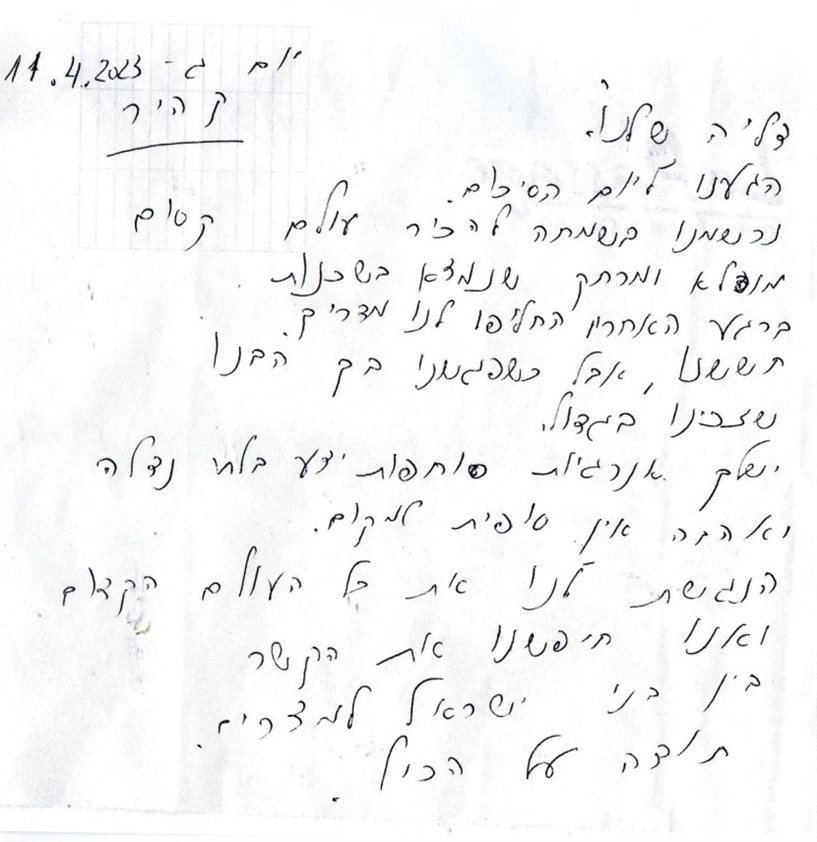 יום ג- 11.4.2023
קהיר
דליה שלנו.
הגענו ליום הסיכום.
נרשמנו בשמחה להכיר עולם קסום
מופלא ומרתק שנמצא בשכנות.
ברגע האחרון החליפו לנו מדריך.
חששנו, אבל כשפגשנו בך הבנו
שזכינו בגדול.
ישלך אנרגיות סוחפות ידע בלתי נדלה
ואהבה אין סופית למקום.
הנגשת לנו את כל העולם הקדום
ואנו חיפשנו את הקשר
בין בני ישראל למצרים.
תודה על הכול.